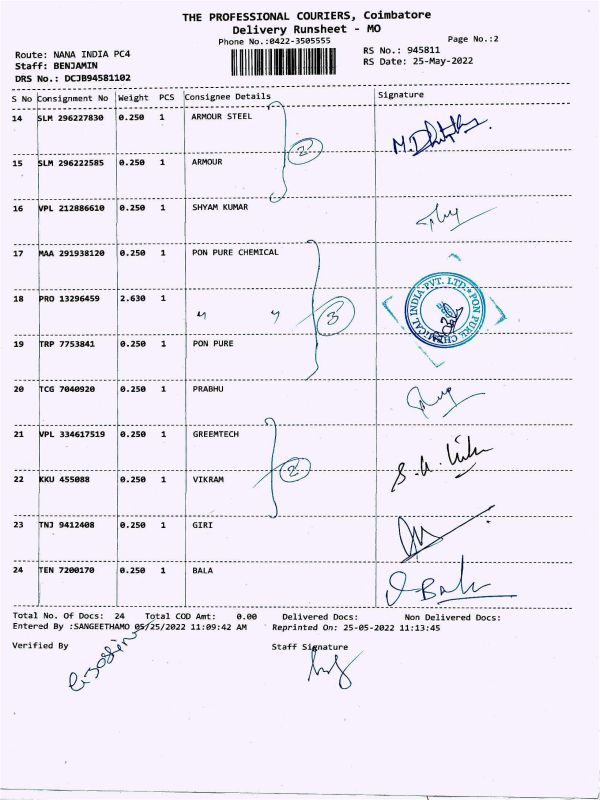 THE PROFESSIONAL COURIERS, Coimbatore
Delivery Runsheet - MO
Phone No.:0422-3505555
Page No.:2
Route: NANA INDIA PC4
RS No.: 945811
Staff: BENJAMIN
RS Date: 25-May-2022
DRS No.: DCJB94581102
S No Consignment No Weight PCS Consignee Details Signature
14 SLM 296227830 0.250 1 ARMOUR STEEL
2
15 SLM 296222585 0.250 1 ARMOUR
16 VPL 212886610 0.250 1 SHYAM KUMAR
17 MAA 291938120 0.250 1 PON PURE CHEMICAL
18 PRO 13296459 2.630 1 " "
3
PON PURE CHEMICAL INDIA PVT. LTD.
19 TRP 7753841 0.250 1 PON PURE
20 TCG 7040920 0.250 1 PRABHU
21 VPL 334617519 0.250 1 GREEMTECH
2
22 KKU 455088 0.250 1 VIKRAM
23 TNJ 9412408 0.250 1 GIRI
24 TEN 7200170 0.250 1 BALA
Bala
Total No. Of Docs: 24 Total COD Amt: 0.00 Delivered Docs: Non Delivered Docs:
Entered By :SANGEETHAMO 05/25/2022 11:09:42 AM Reprinted On: 25-05-2022 11:13:45
Verified By Staff Signature